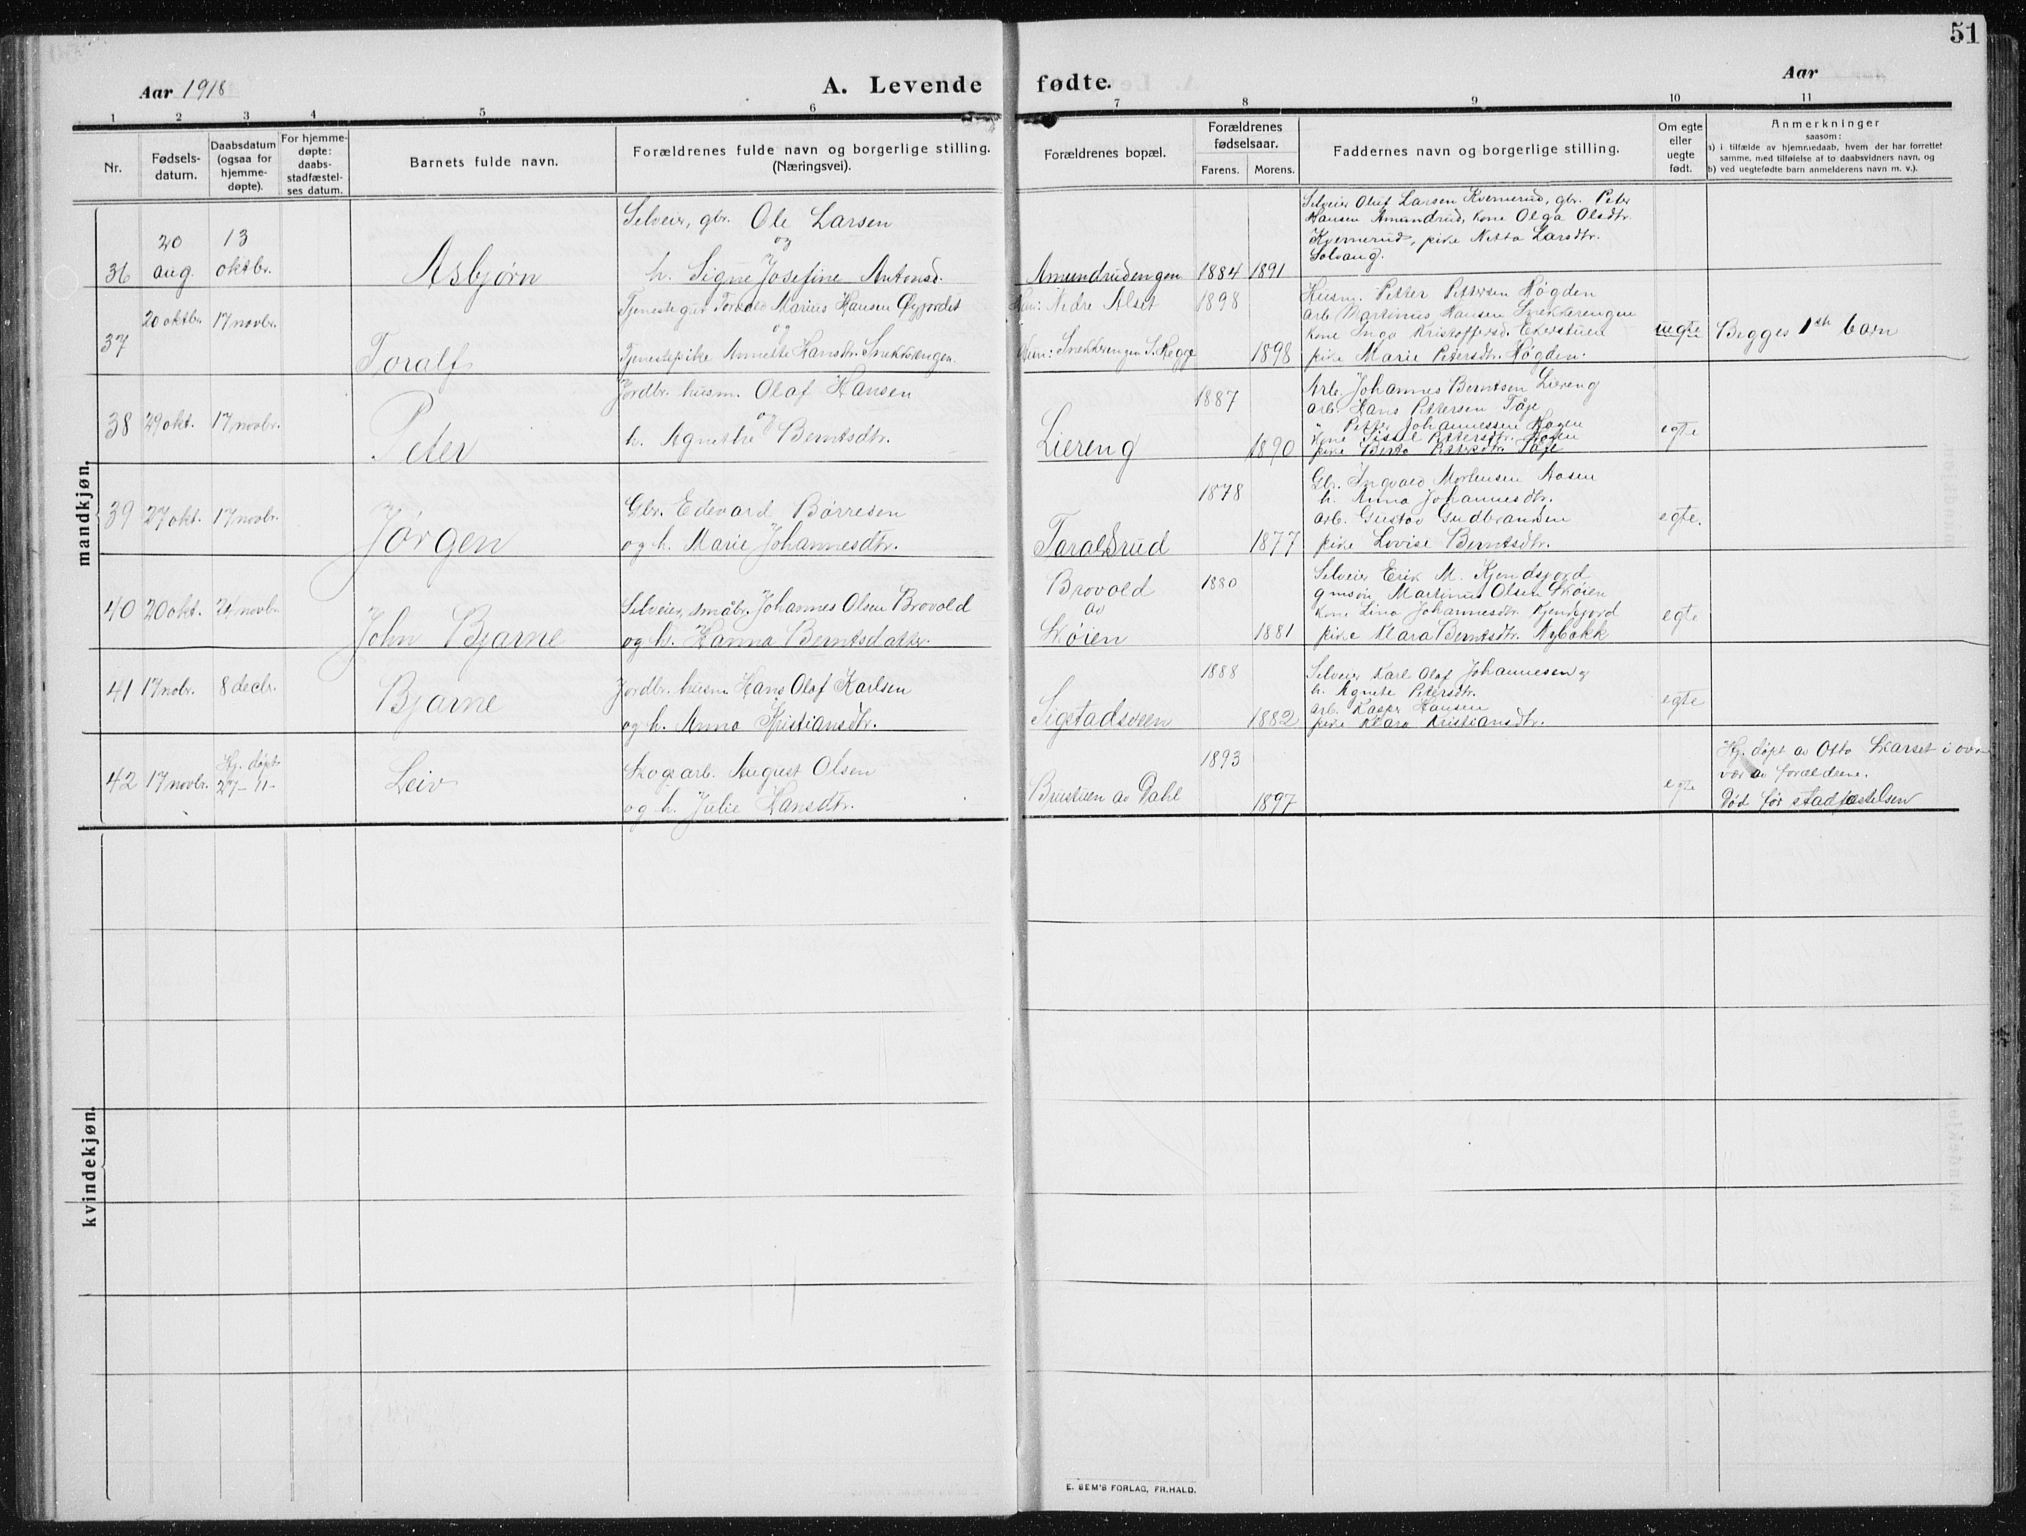 51
Aar 1918
A. Levende fødte.
Aar
1 2 3 4 5 6 7 8 9 10 11
Nr.
Fødsels-
datum.
Daabsdatum
(ogsaa for
hjemme-
døpte).
For hjemme-
døpte:
daabs-
stadfæstel-
ses datum.
Barnets fulde navn.
Forældrenes fulde navn og borgerlige stilling.
(Næringsvei).
Forældrenes bopæl.
Forældrenes
fødselsaar.
Farens. Morens.
Faddernes navn og borgerlige stilling.
Om egte
eller
uegte
født.
Anmerkninger
saasom:
a) i tilfælde av hjemmedaab, hvem der har forrettet
samme, med tilføielse af to daabsvidners navn, og
b) ved uegtefødte barn anmelderens navn m. v.).
mandkjøn.
36
20
aug.
13
oktbr.
Asbjørn
Selveier, gbr. Ole Larsen
og
h. Signe Josefine Antonsd.
Amundrudengen
1884 1891
Selveier Oluf Larsen Kvernerud, gbr. Peter
Hansen Amundrud, kone Olga Olsdtr.
Kvernerud, pike Netta Larsdtr.
Solvang.
37
20 oktbr.
17 novbr.
Toralf
Tjenestegut Toralf Marius Hansen Øygjordet
og
Tjenestepike Annette Hansdtr. Snekkerengen
Han: Nedre Alset
Hun: Snekkerengen S. Hegge
1898
1898
Husm. Petter Pettersen Høgden
arb. Martinus Hansen Snekkerengen
kone Inga Kristoffersd. Ekerstuen
pike Marie Petersdtr. Høgden.
uegte
Begges 1ste barn
38
29 okt.
17 novbr.
Peter
Jordbr. husm. Olaf Hansen
og
h. Agnethe Berntsdtr.
Liereng
1887
1890
Arb. Johannes Berntsen Liereng
arb. Hans Pettersen Tåje
" Petter Johannessen Hagen
kone Sissel Pettersdtr. Hagen
pike Berta Pettersdtr. Tåje
egte
39
27 okt.
17 novbr.
Jørgen
Gbr. Edevard Børresen
og h. Marie Johannesdtr.
Taralsrud
1878
1877
Gbr. Ingvald Mortensen Aasen
h. Anna Johannesdtr.
arb. Gustav Gudbrandsen
pike Lovise Berntsdtr.
egte.
40
20 okt.
24 novbr.
John Bjarne
Selveier, småbr. Johannes Olsen Brovold
og h. Hanna Berntsdatter
Brovold
av
Skøien
1880
1881
Selveier Erik M. Kjendsjord
gmsøn Martinus Olsen Skøien
kone Lina Johannesdtr. Kjendsjord
pike Klara Berntsdtr. Nybakk
egte
41
17 nobr.
8 decbr.
Bjarne
Jordbr. husm Hans Olaf Karlsen
og h. Anna Kristiansdtr.
Sigstadsveen
1888
1882
Selveier Karl Olaf Johannesen og
h. Agnete Petersdtr.
arb. Kasper Hansen
pike Klara Kristiansdtr.
egte
42
17 novbr.
Hj. døpt
27-11-
Leiv
Skogsarb. August Olsen
og h. Julie Hansdtr.
Brustuen av Dahl
1893
1897
egte
Hj. døpt av Otto Skarset i over
vær av forældrene.
Død før stadfæstelsen
kvindekjøn.
E. SEM'S FORLAG, FR.HALD.